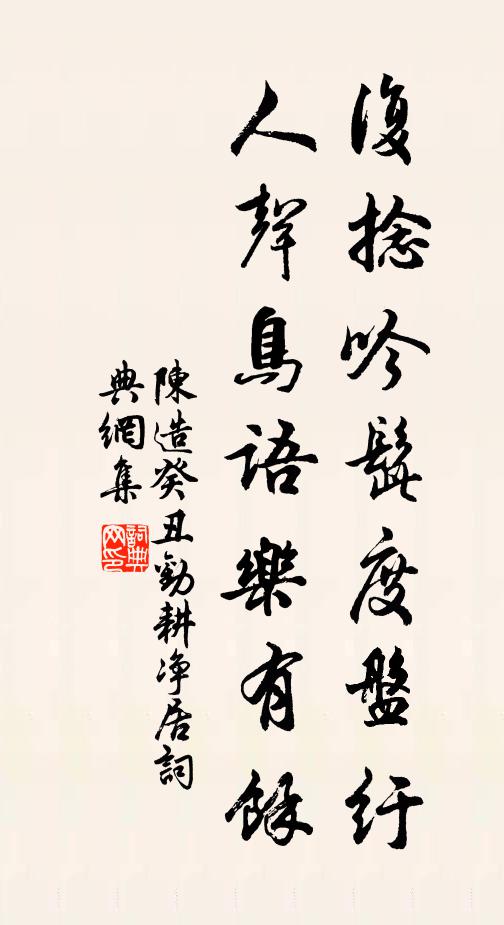 復捻吟髭度盤紆
人聲鳥語樂有餘
陳造癸丑勸耕淨居詞
典網集
詞典
网印